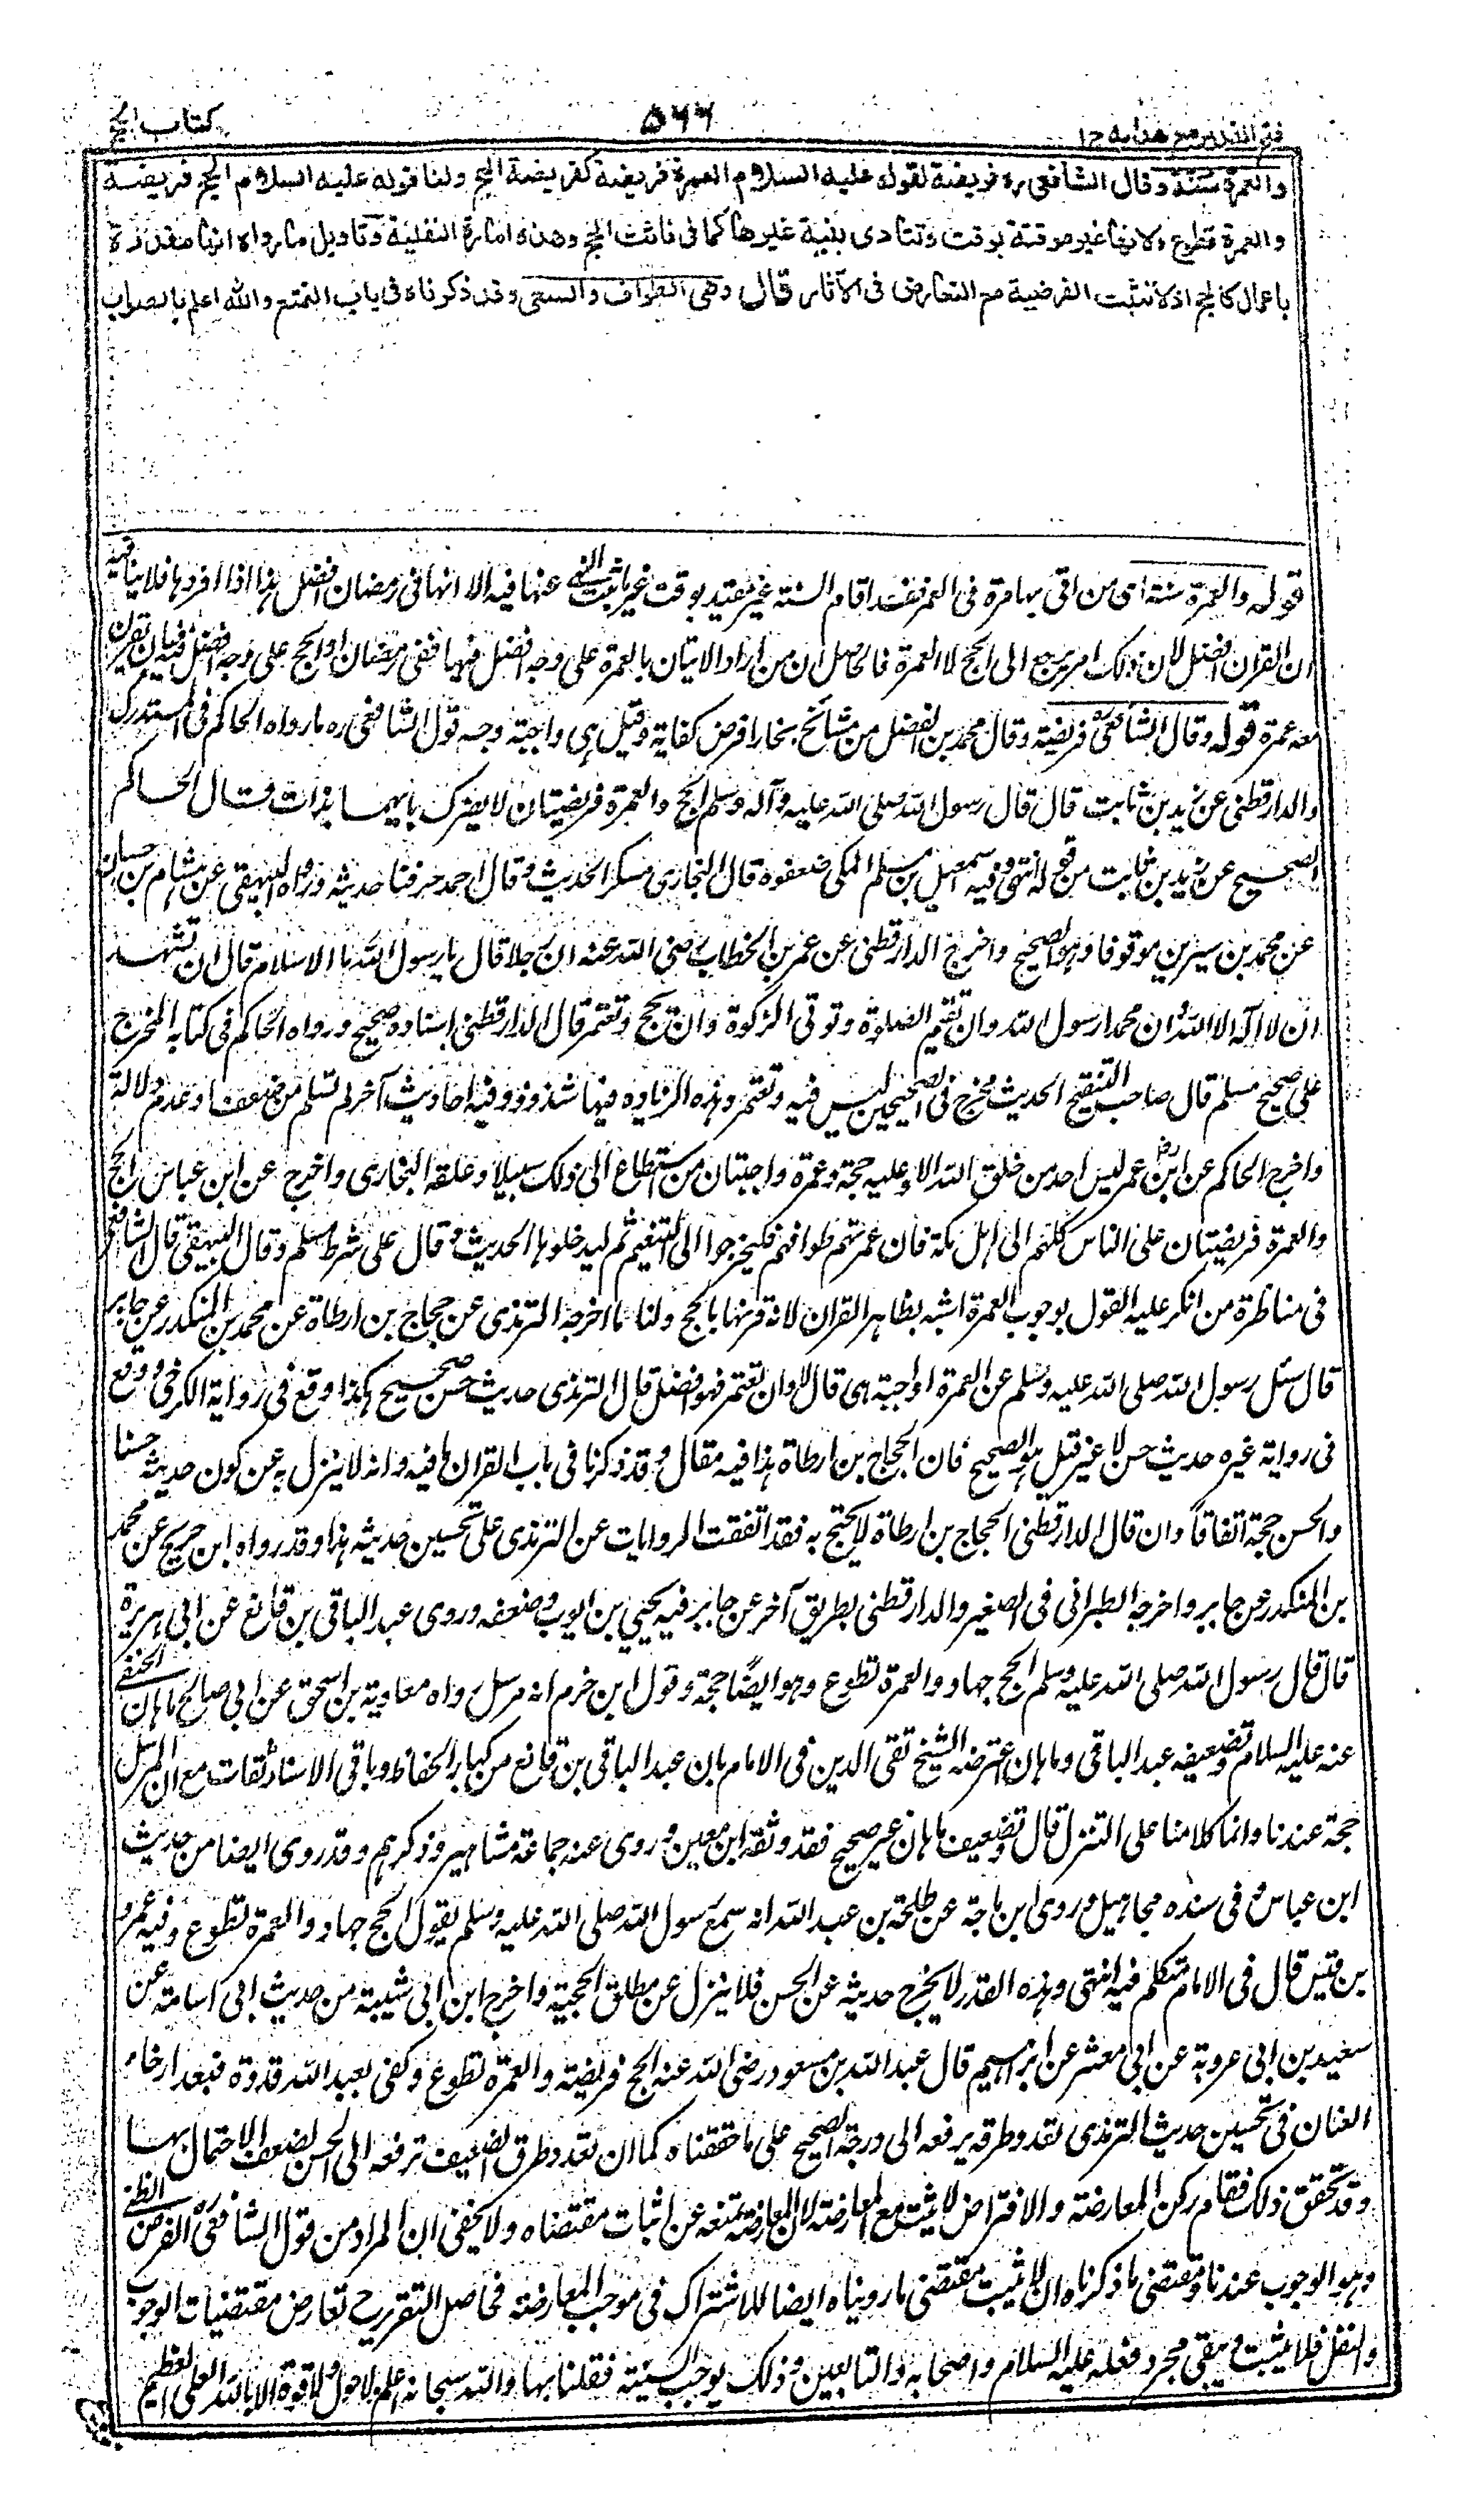 فتح القدير مع هدايه ج ا ٥٦٦ كتاب الحج
والعمرة سنة وقال الشافعى ره فريضة لقوله عليه السلام العمرة فريضة كفريضة الحج ولنا قوله عليه السلام الحج فريضة
والعمرة تطوع ولانها غير موقتة بوقت وتتادى بنية غيرها كما فى فائت الحج وهذه امارة النفلية وتاويل ما رواه انها مقدرة
باعمال كالحج اذ لا تثبت الفرضية مع التعارض فى الآثار قال وهى الطواف والسعى وقد ذكرناه فى باب التمتع والله اعلم بالصواب
قوله والعمرة سنة اى من اتى بها مرة فى العمر فقد اقام السنة غير مقيد بوقت غير ما ثبت النهى عنها فيه الا انها فى رمضان افضل هذا اذا افردها فلا ينافيه
ان القران افضل لان ذلك امر يرجع الى الحج لا العمرة فالحاصل ان من اراد الاتيان بالعمرة على وجه افضل فيها ففى رمضان او الحج على وجه افضل فيه فبان يقرن
معه عمرة قوله وقال الشافعى ره فريضة وقال محمد بن الفضل من مشائخ بخارا فرض كفاية وقيل هى واجبة وجه قول الشافعى ره ما رواه الحاكم فى المستدرك
والدارقطنى عن زيد بن ثابت قال قال رسول الله صلى الله عليه وآله وسلم الحج والعمرة فريضتان لا يضرك بايهما بدات قال الحاكم
الصحيح عن زيد بن ثابت من قوله انتهى وفيه اسمعيل بن مسلم المكى ضعفوه قال البخارى منكر الحديث وقال احمد خرقنا حديثه ورواه البيهقى عن هشام بن حسان
عن محمد بن سيرين موقوفا وهو الصحيح واخرج الدارقطنى عن عمر بن الخطاب رضى الله عنه ان رجلا قال يا رسول الله ما الاسلام قال ان تشهد
ان لا اله الا الله وان محمدا رسول الله وان تقيم الصلوة وتوتى الزكوة وان تحج وتعتمر قال الدارقطنى اسناده صحيح ورواه الحاكم فى كتابه المخرج
على صحيح مسلم قال صاحب التنقيح الحديث مخرج فى الصحيحين ليس فيه وتعتمر وهذه الزياده فيها شذوذ وفيه احاديث آخر لم تسلم من ضعف او عدم دلالة
واخرج الحاكم عن ابن عمر رض ليس احد من خلق الله الا وعليه حجة وعمرة واجبتان من استطاع الى ذلك سبيلا وعلقه البخارى واخرج عن ابن عباس الحج
والعمرة فريضتان على الناس كلهم الى اهل مكة فان عمرتهم طوافهم فليخرجوا الى التنعيم ثم ليدخلوها الحديث وقال على شرط مسلم وقال البيهقى قال الشافعى
فى مناظرة من انكر عليه القول بوجوب العمرة اشبه بظاهر القران لانه قرنها بالحج ولنا ما اخرجه الترمذى عن حجاج بن ارطاة عن محمد بن المنكدر عن جابر
قال سئل رسول الله صلى الله عليه وسلم عن العمرة اواجبة هى قال لا وان تعتمر فهو افضل قال الترمذى حديث حسن صحيح هكذا وقع فى رواية الكرخى ووقع
فى رواية غيره حديث حسن لا غير قيل هو الصحيح فان الحجاج بن ارطاة هذا فيه مقال وقد ذكرنا فى باب القران ما فيه وانه لا ينزل به عن كون حديثه حسنا
والحسن حجة اتفاقا وان قال الدارقطنى الحجاج بن ارطاة لا يحتج به فقد اتفقت الروايات عن الترمذى على تحسين حديثه هذا وقد رواه ابن جريج عن محمد
بن المنكدر عن جابر واخرجه الطبرانى فى الصغير والدارقطنى بطريق آخر عن جابر فيه يحيى بن ايوب وضعفه وروى عبد الباقى بن قانع عن ابى هريرة
قال قال رسول الله صلى الله عليه وسلم الحج جهاد والعمرة تطوع وهو ايضًا حجة وقول ابن حزم انه مرسل رواه معاوية بن اسحق عن ابى صالح ماهان الحنفى
عنه عليه السلام وتضعيفه عبد الباقى وماهان اعترضه الشيخ تقى الدين فى الامام بان عبد الباقى بن قانع من كبار الحفاظ وباقى الاسناد ثقات مع ان المرسل
حجة عندنا وانما كلامنا على التنزل قال وتضعيف ماهان غير صحيح فقد وثقه ابن معين وروى عنه جماعة مشاهير وذكرهم وقد روى ايضا من حديث
ابن عباس وفى سنده مجاهيل وروى ابن ماجة عن طلحة بن عبد الله انه سمع رسول الله صلى الله عليه وسلم يقول الحج جهاد والعمرة تطوع وفيه عمرو
بن قيس قال فى الامام متكلم فيه انتهى وهذه القدر لا يخرج حديثه عن الحسن فلا ينزل عن مطلق الحجية واخرج ابن ابى شيبة من حديث ابى اسامة عن
سعيد بن ابى عروبة عن ابى معشر عن ابراهيم قال عبد الله بن مسعود رضى الله عنه الحج فريضة والعمرة تطوع وكفى بعبد الله قدوة فبعد ارخاء
العنان فى تحسين حديث الترمذى تعدد طرقه يرفعه الى درجة الصحيح على ما حققناه كما ان تعدد طرق الضعيف ترفعه الى الحسن لضعف الاحتمال بها
وقد تحقق ذلك فقام ركن المعارضة والافتراض لا يثبت مع المعارضة لان المعارضة تمنعه عن اثبات مقتضاه ولا يخفى ان المراد من قول الشافعى ره الفرض الظنى
وهو الوجوب عندنا ومقتضى ما ذكرناه ان لا يثبت مقتضى ما رويناه ايضا للاشتراك فى موجب المعارضة فحاصل التقرير ح تعارض مقتضيات الوجوب
والنفل فلا يثبت ويبقى مجرد فعله عليه السلام واصحابه والتابعين وذلك يوجب السنية فقلنا بها والله سبحانه اعلم ولا حول ولا قوة الا بالله العلى العظيم